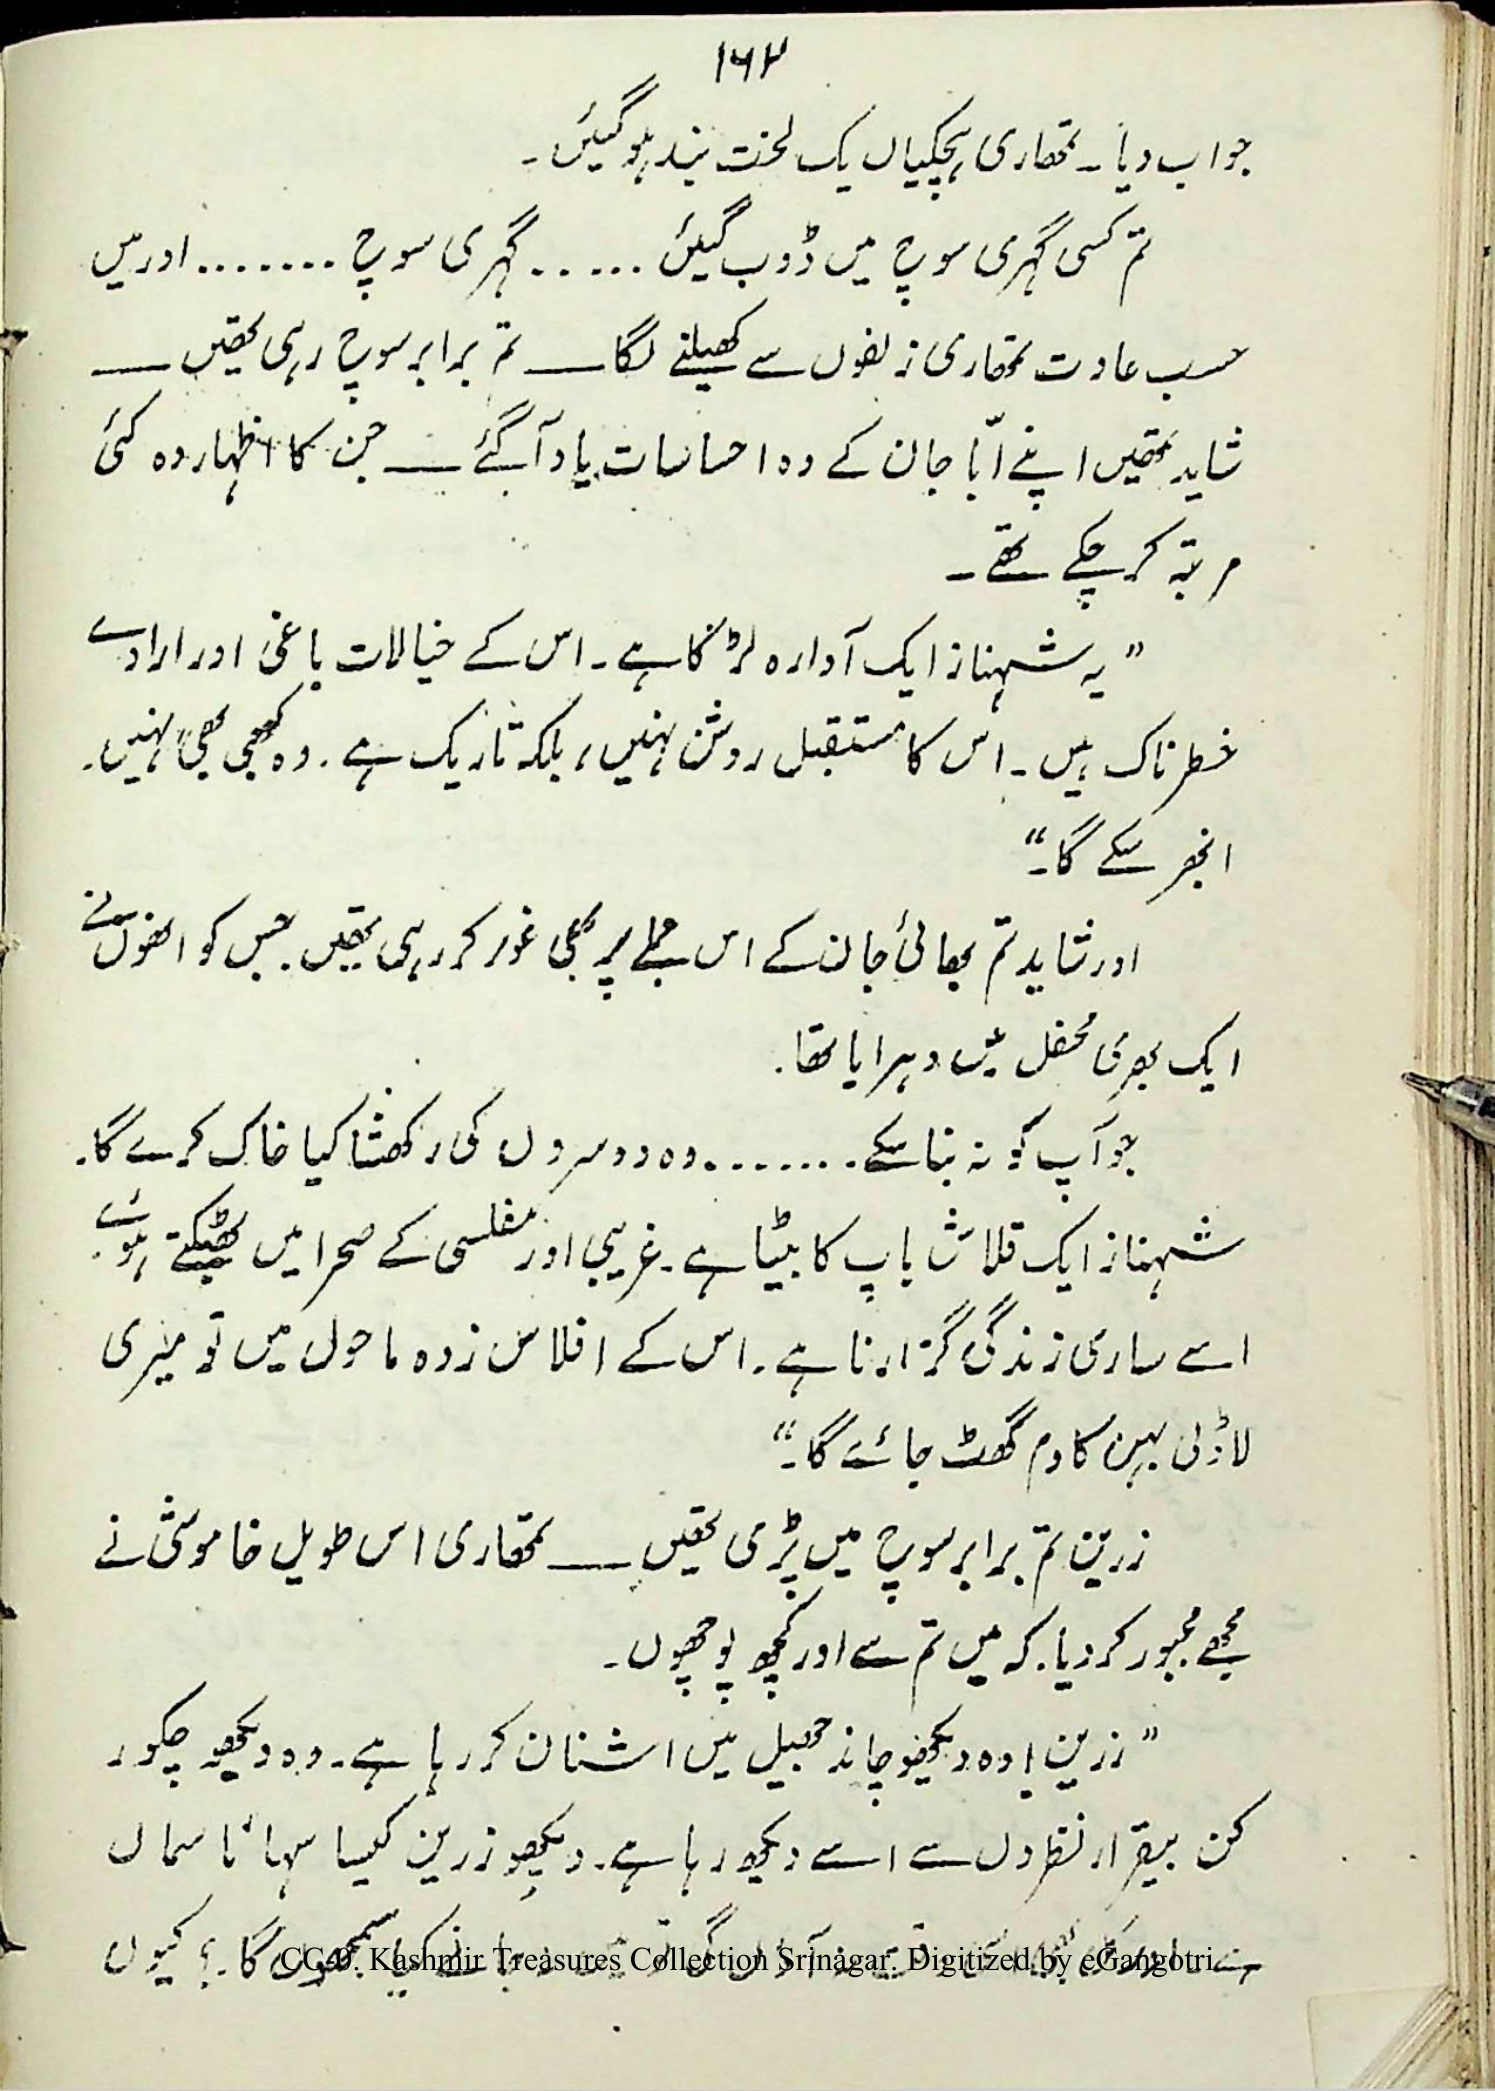 ۱۶۲
جواب دیا۔ تمھاری ہچکیاں یک لخت بند ہو گیئں۔
تم کسی گہری سوچ میں ڈوب گیئں ...... گہری سوچ ....... اور میں
حسب عادت تمھاری زلفوں سے کھیلنے لگا ــــ تم برابر سوچ رہی تھیں ــــ
شاید تمھیں اپنے ابّا جان کے وہ احساسات یاد آ گئے ــــ جن کا اظہار وہ کئی
مرتبہ کر چکے تھے۔
”یہ شہناز ایک آوارہ لڑکا ہے۔ اس کے خیالات باغی اور ارادے
خطرناک ہیں۔ اس کا مستقبل روشن نہیں، بلکہ تاریک ہے۔ وہ کبھی بھی نہیں۔
ابھر سکے گا۔“
اور شاید تم بھائی جان کے اس جملے پر بھی غور کر رہی تھیں جس کو انھوں نے
ایک بھری محفل میں دہرایا تھا۔
جو آپ کو نہ بنا سکے ........ وہ دوسروں کی رکھشا کیا خاک کرے گا۔
شہناز ایک قلاش باپ کا بیٹا ہے۔ غریبی اور مفلسی کے صحرا میں بھٹکتے ہوئے
اسے ساری زندگی گزارنا ہے۔ اس کے افلاس زدہ ماحول میں تو میری
لاڈلی بہن کا دم گھٹ جائے گا۔“
زرین تم برابر سوچ میں پڑی تھیں ــــ تمھاری اس طویل خاموشی نے
مجھے مجبور کر دیا۔ کہ میں تم سے اور کچھ پوچھوں۔
”زرین! وہ دیکھو چاند جھیل میں اشنان کر رہا ہے۔ وہ دیکھو چکور
کن بیقرار نظروں سے اسے دیکھ رہا ہے۔ دیکھو زرین کیسا سہانا سماں
ہے سمجھوں گا۔؟ کیوں
CC-0. Kashmir Treasures Collection Srinagar. Digitized by eGangotri